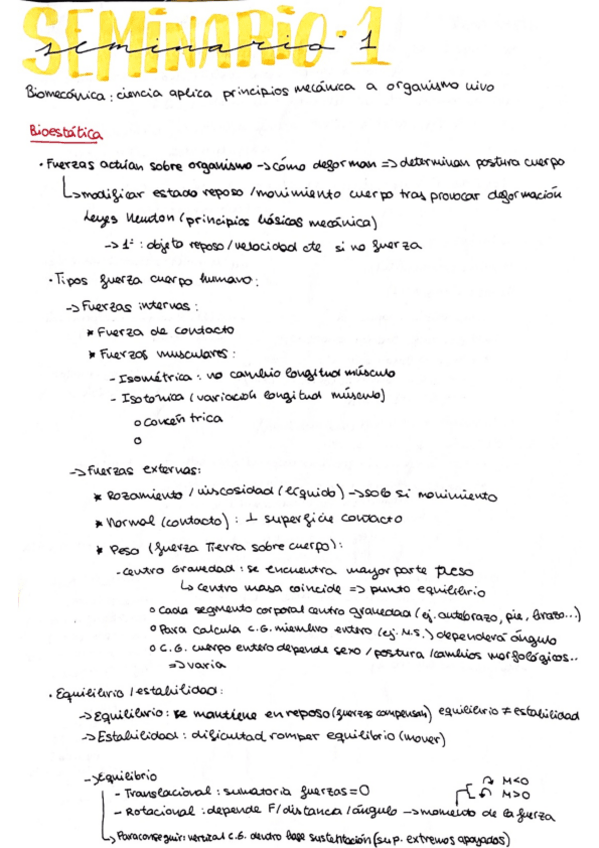 SEMINARIO·1
seminario
Biomecánica: ciencia aplica principios mecánica a organismo vivo
Bioestática
· Fuerzas actúan sobre organismo -> cómo deforman => determinan postura cuerpo
↳ modificar estado reposo / movimiento cuerpo tras provocar deformación
Leyes Newton (principios básicos mecánica)
-> 1ª: objeto reposo / velocidad cte si no fuerza
· Tipos fuerza cuerpo humano:
-> Fuerzas internas:
* Fuerza de contacto
* Fuerzas musculares:
- Isométrica: no cambio longitud músculo
- Isotónica (variación longitud músculo)
o concéntrica
o
-> Fuerzas externas:
* Rozamiento / viscosidad (líquido) -> solo si movimiento
* Normal (contacto): ⊥ superficie contacto
* Peso (fuerza Tierra sobre cuerpo):
- centro Gravedad: se encuentra mayor parte peso
↳ centro masa coincide => punto equilibrio
o Cada segmento corporal centro gravedad (ej. antebrazo, pie, brazo...)
o Para calcula C.G. miembro entero (ej. M.S.) dependerá ángulo
o C.G. cuerpo entero depende sexo / postura / cambios morfológicos..
=> varía
· Equilibrio / estabilidad:
-> Equilibrio: se mantiene en reposo (fuerzas compensan) equilibrio ≠ estabilidad
-> Estabilidad: dificultad romper equilibrio (mover)
-> Equilibrio
- Translacional: sumatoria fuerzas = 0
- Rotacional: depende F/distancia/ángulo -> momento de la fuerza
↷ M<0
↶ M>0
↳ Para conseguir: vertical C.G. dentro base sustentación (sup. extremos apoyados)